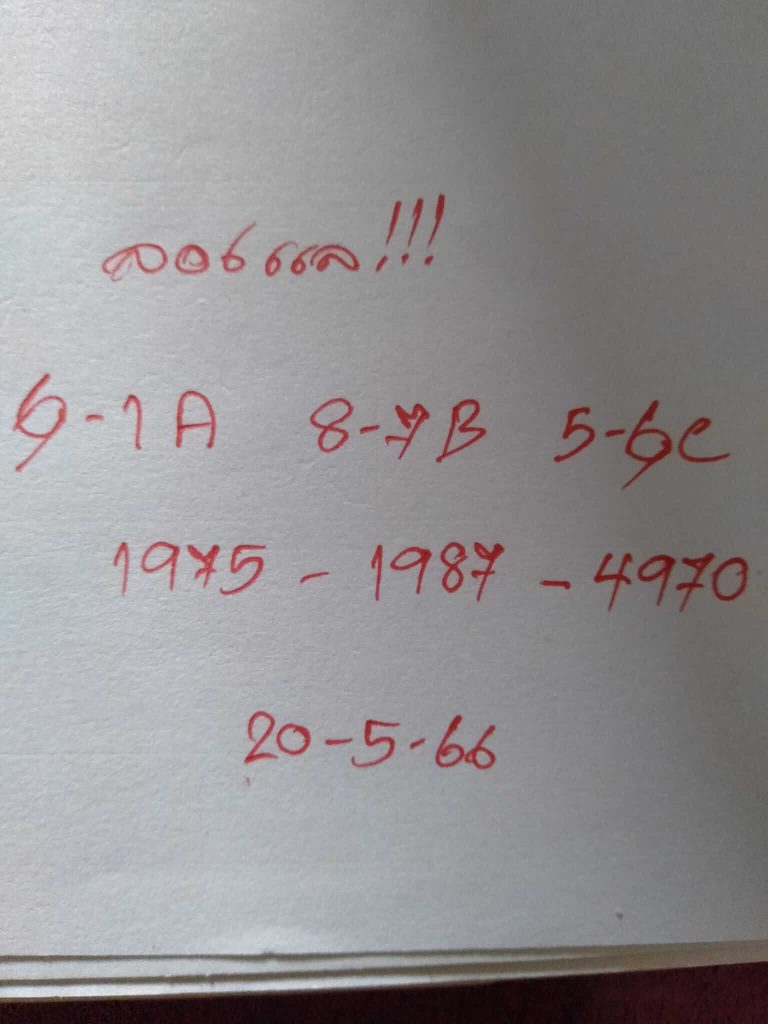 ลองแล!!!
6-1A 8-7B 5-6C
1975 - 1987 - 4970
20-5-66